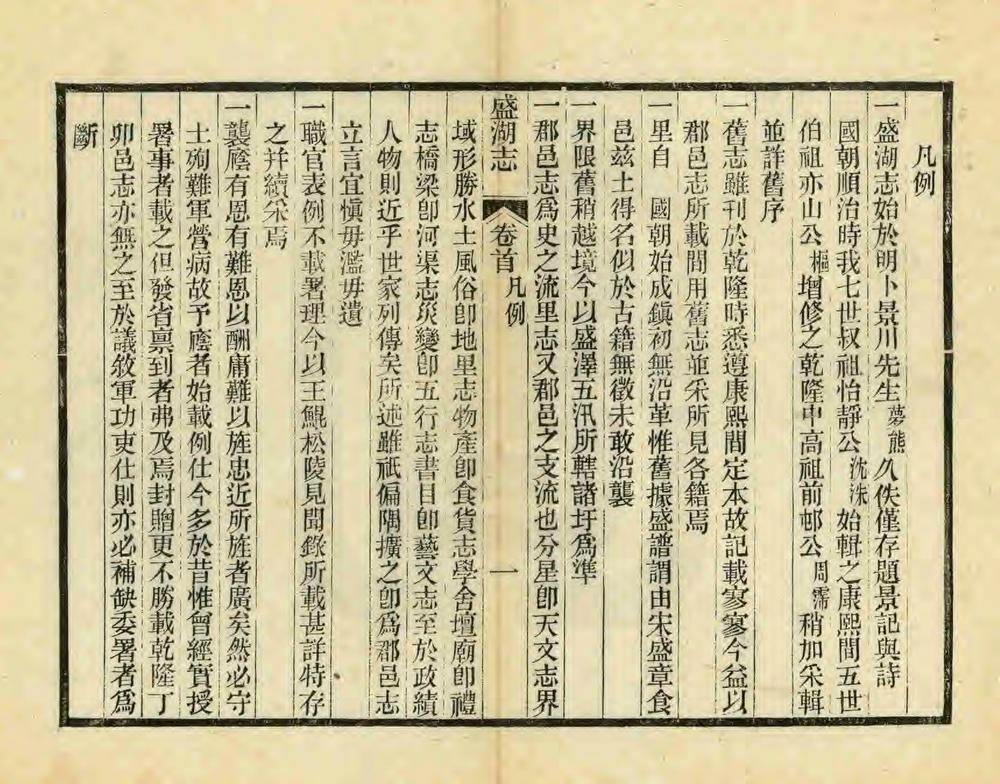 凡例
一盛湖志始於明卜景川先生夢熊久佚僅存題景記與詩
國朝順治時我七世叔祖怡靜公沈洙始輯之康熙間五世
伯祖亦山公樞增修之乾隆中高祖前邨公周霈稍加采輯
並詳舊序
一舊志雖刊於乾隆時悉遵康熙間定本故記載寥寥今益以
郡邑志所載間用舊志並采所見各籍焉
一里自　國朝始成鎮初無沿革惟舊據盛譜謂由宋盛章食
邑茲土得名似於古籍無徵未敢沿襲
一界限舊稍越境今以盛澤五汛所轄諸圩爲準
一郡邑志爲史之流里志又郡邑之支流也分星卽天文志界
盛湖志　卷首　凡例　一
域形勝水土風俗卽地里志物產卽食貨志學舍壇廟卽禮
志橋梁卽河渠志災變卽五行志書目卽藝文志至於政績
人物則近乎世家列傳矣所述雖祇偏隅擴之卽爲郡邑志
立言宜愼毋濫毋遺
一職官表例不載署理今以王鯤松陵見聞錄所載甚詳特存
之并續采焉
一襲廕有恩有難恩以酬庸難以旌忠近所旌者廣矣然必守
土殉難軍營病故予廕者始載例仕今多於昔惟曾經實授
署事者載之但發省稟到者弗及焉封贈更不勝載乾隆丁
卯邑志亦無之至於議敘軍功吏仕則亦必補缺委署者爲
斷